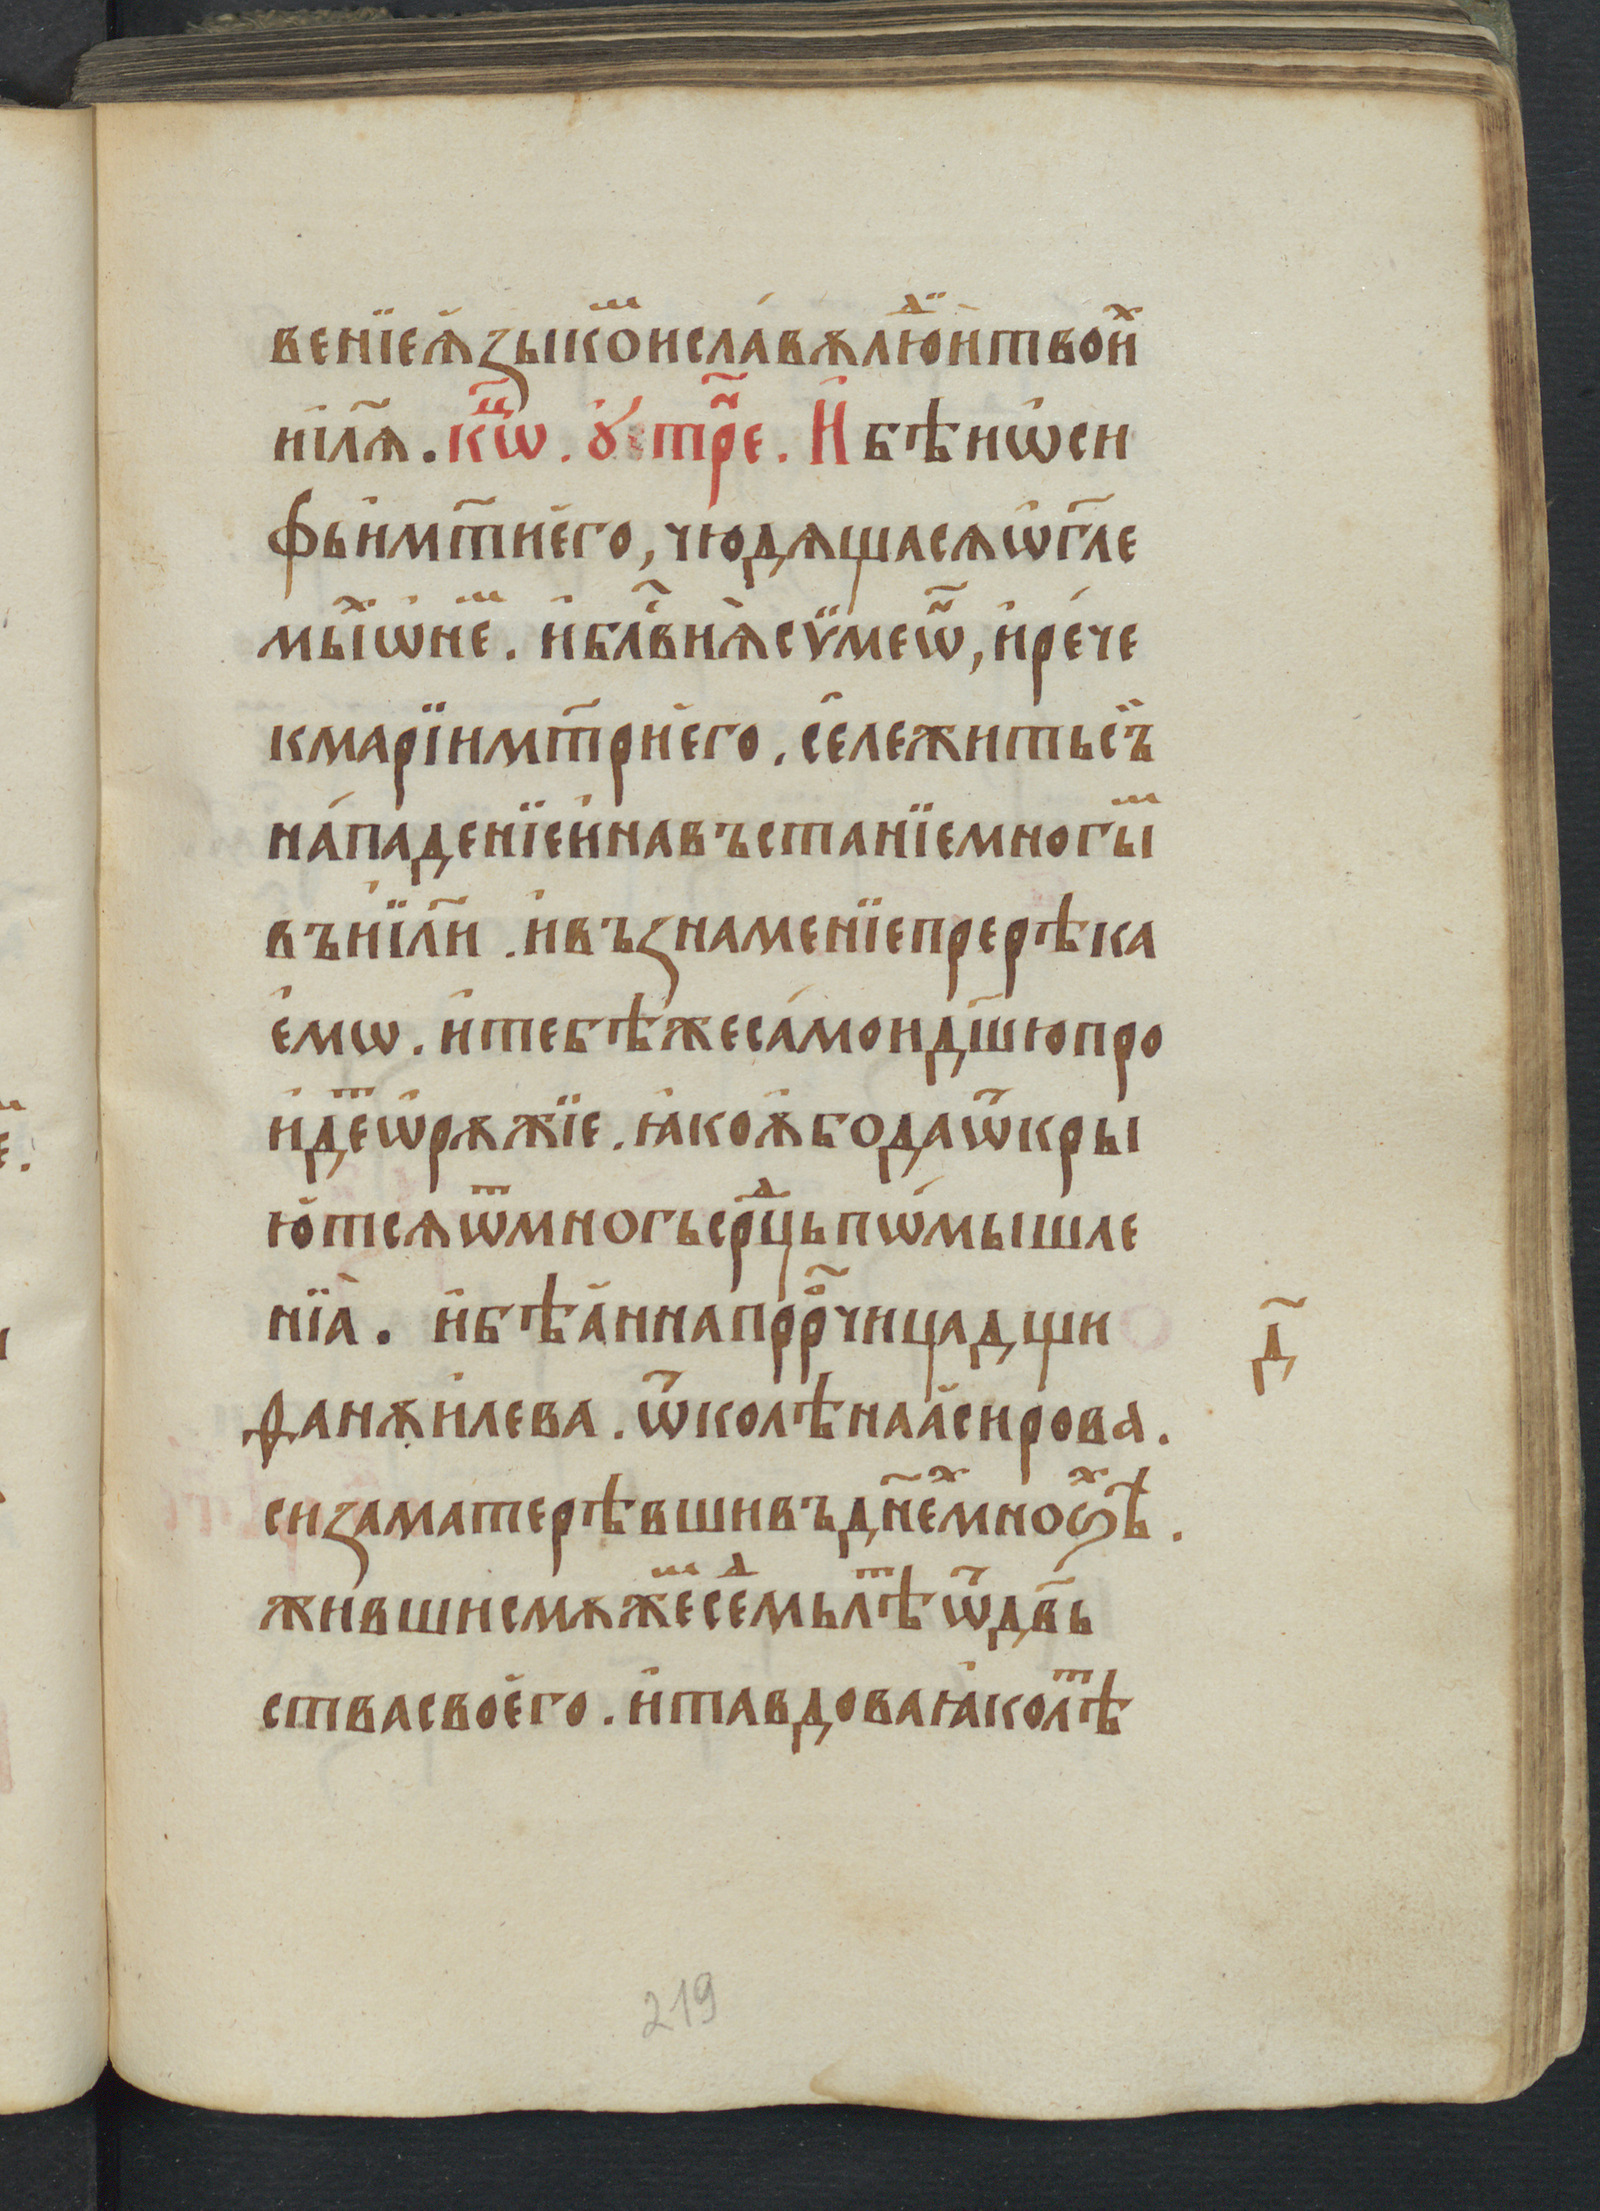 венїеѧ҆зыкоⷨ҇иславѧлю́дⷷи҆твои҆ⷯ
і҆и҃лѧ. кⷰ҇ѡ. ꙋ҆тр҃е. И҆бѣиѡ҆си
фьи҆мт҃ие҆го, чюдѧщасѧѡ҆гл҃е
мыⷯ҇ѡ҆неⷨ҇. и҆бл҃ви ѧ҆сѵ̈меѡ҃, и҆ре́че
кмарїимт҃рие҆го. се҆лежитьсъ̈
на́паденїеи҆навъстанїемногыⷨ
въі҆и҃ли. и҆възнаменїепререѣка
е҆мѡ. и҆тебѣжеса́мои д҃шюпро
и҆деⷮ҇ѡ҆рѫжїе. ꙗ҆коѧ҆бодаѿкры
ю҆тсѧѿмногьсрⷣцьпѡ́мышле
нїа̀. и҆бѣа҆ннапрⷪ҇рчицадщи
фанѫи҆лева. ѿколѣнаа҆сирова.
сизаматерѣвшивъдн҃еⷯмноѕⷯѣ.
жившисмѫжеⷨ҇сеⷣмьлѣⷮ҇ѿдв҃ь
ствасвое҆го. и҆тавдоваꙗ҆колѣⷮ
д҃
219